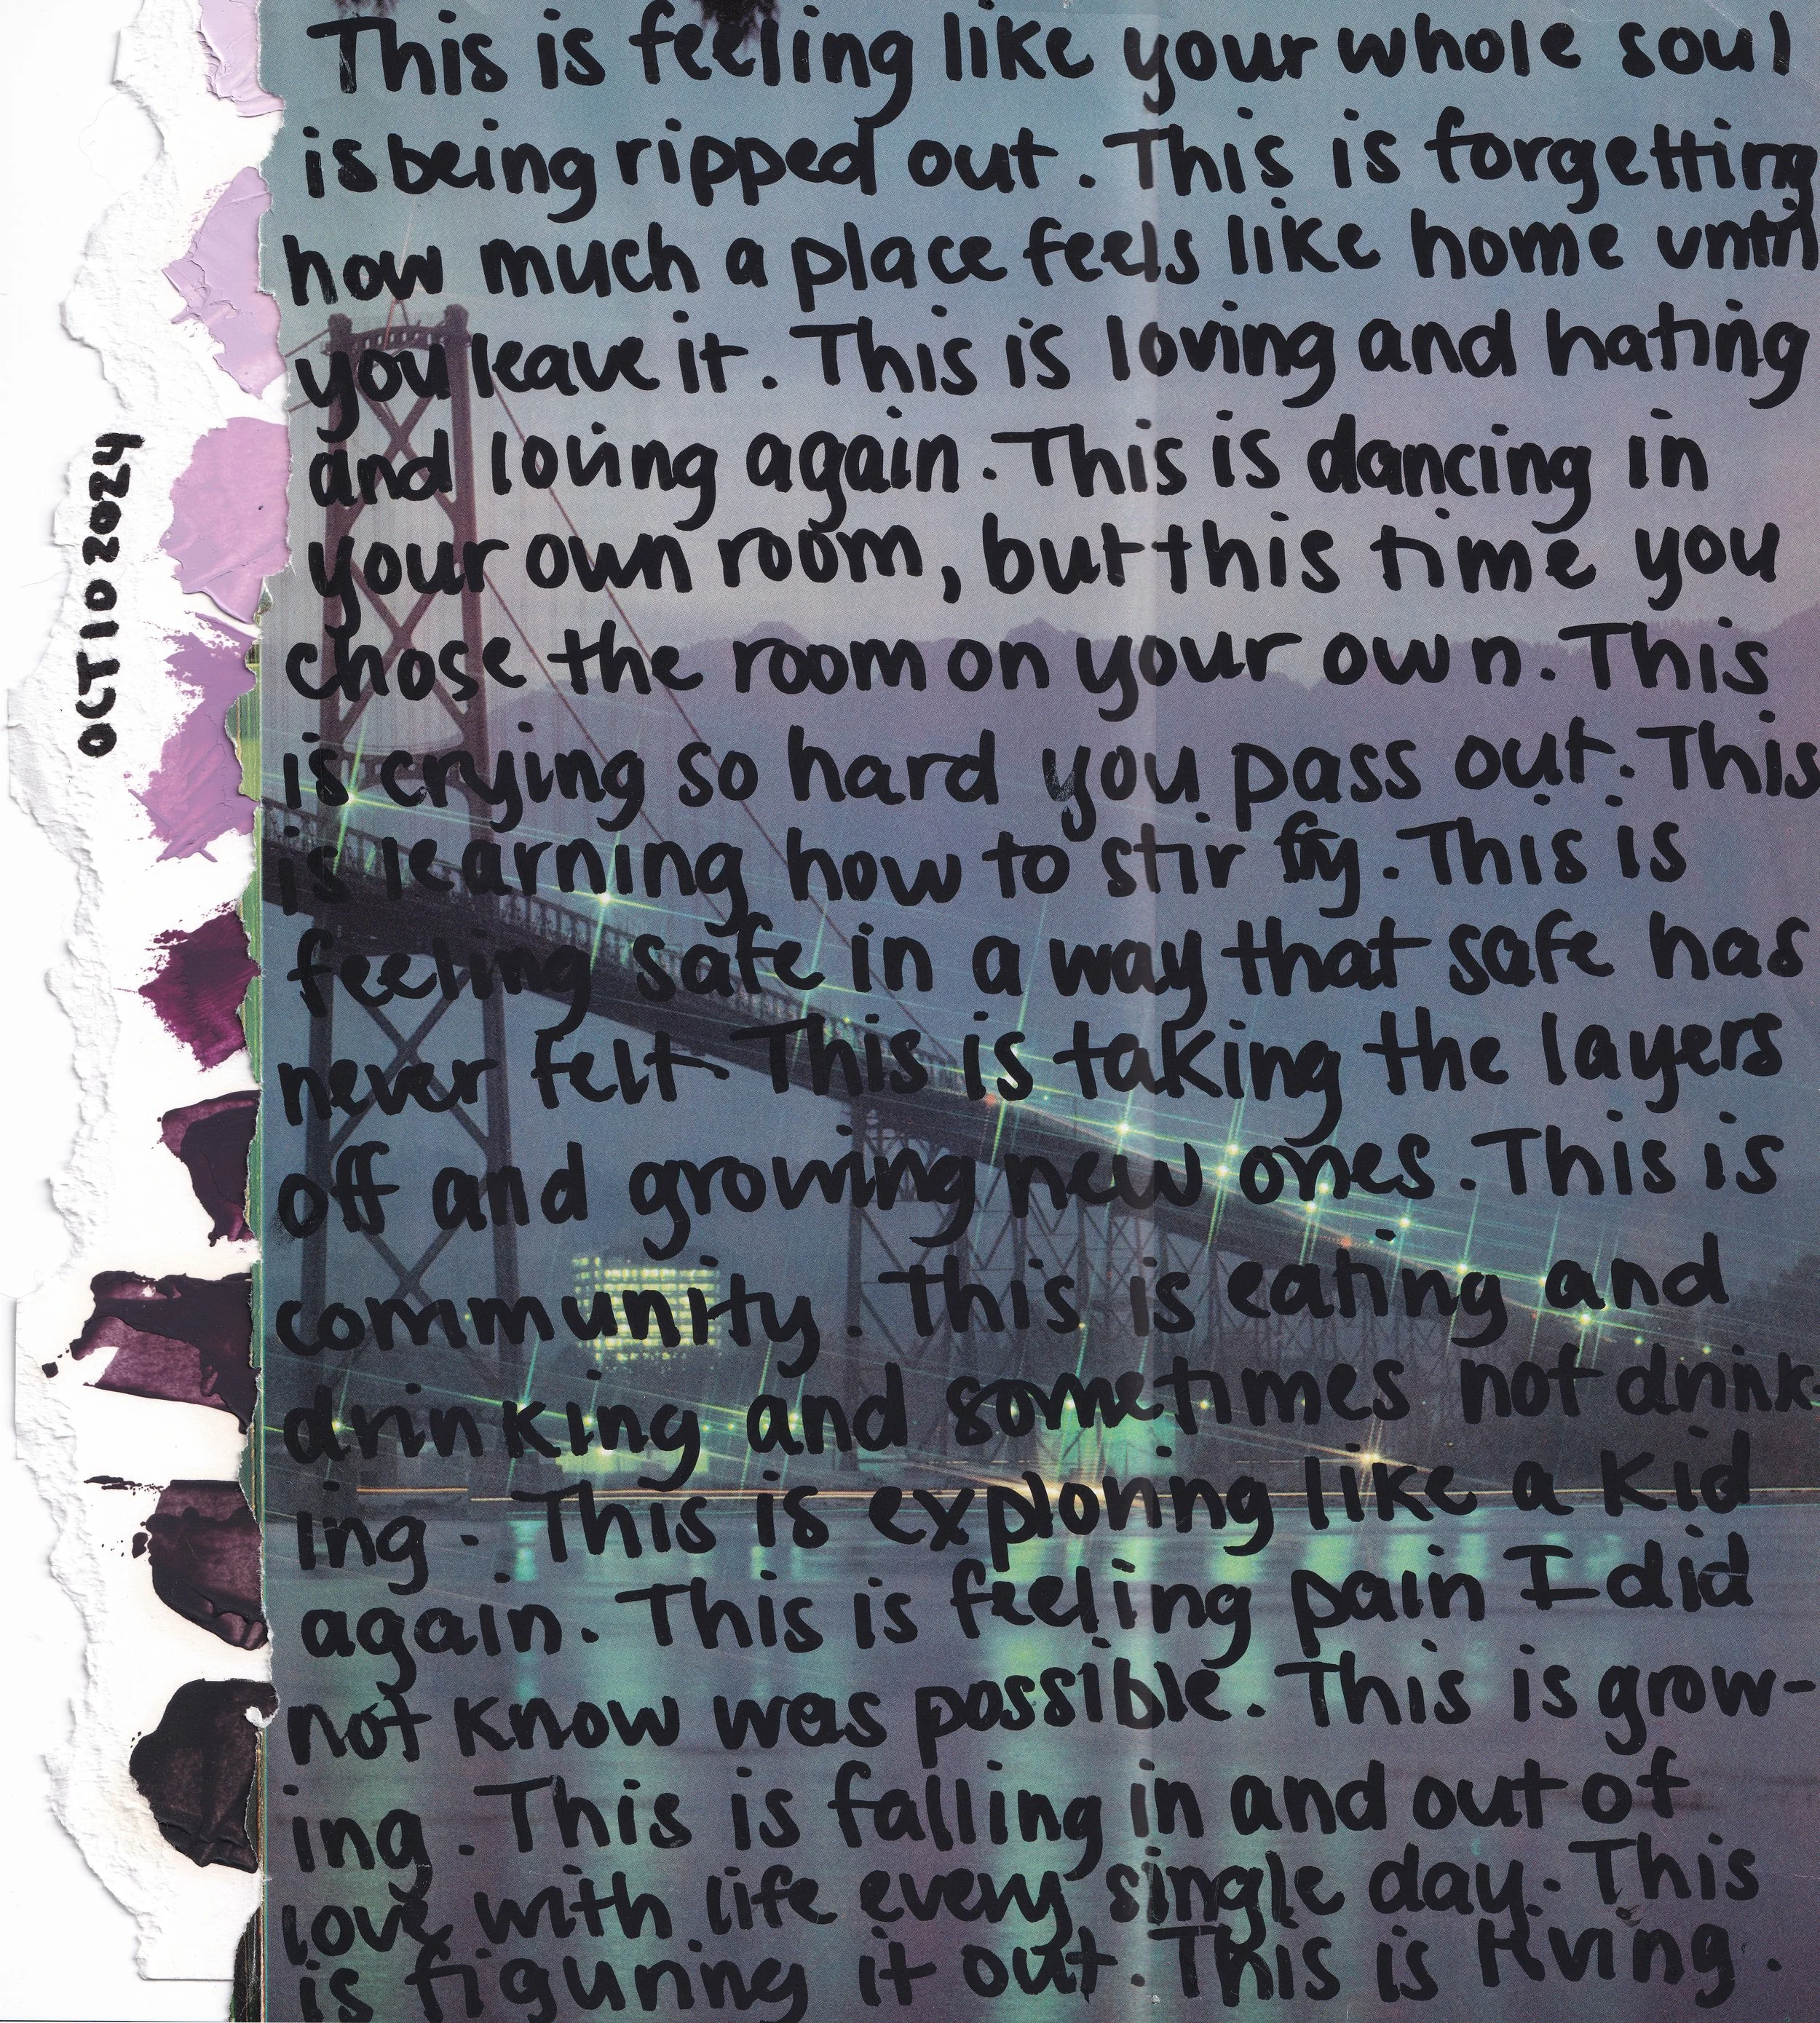 OCT 10 2024
This is feeling like your whole soul
is being ripped out. This is forgetting
how much a place feels like home until
you leave it. This is loving and hating
and loving again. This is dancing in
your own room, but this time you
chose the room on your own. This
is crying so hard you pass out. This
is learning how to stir fry. This is
feeling safe in a way that safe has
never felt. This is taking the layers
off and growing new ones. This is
community. This is eating and
drinking and sometimes not drink-
ing. This is exploring like a kid
again. This is feeling pain I did
not know was possible. This is grow-
ing. This is falling in and out of
love with life every single day. This
is figuring it out. This is living.